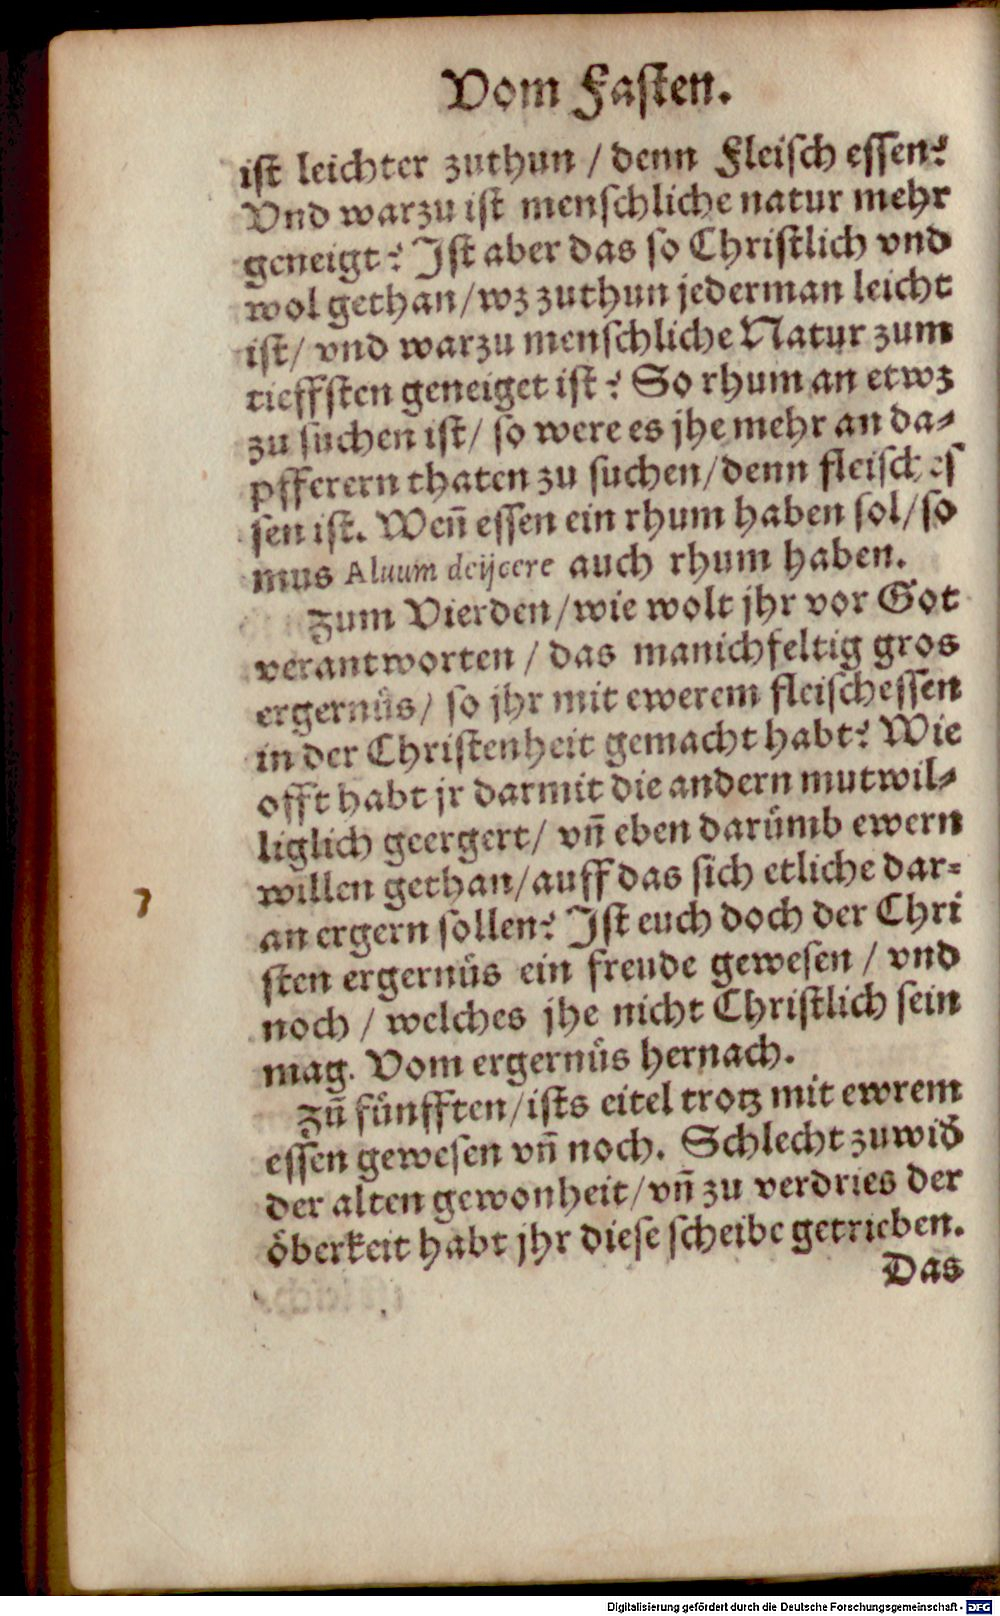 Vom Fasten.
ist leichter zuthun / denn Fleisch essen?
Vnd warzu ist menschliche natur mehr
geneigt? Ist aber das so Christlich vnd
wol gethan/wz zuthun jederman leicht
ist/ vnd warzu menschliche Natur zum
tieffsten geneiget ist? So rhum an etwz
zu suchen ist/ so were es jhe mehr an da-
pfferern thaten zu suchen/denn fleisch es
sen ist. Weñ essen ein rhum haben sol/so
mus Aluum deijcere auch rhum haben.
Zum Vierden/wie wolt jhr vor Got
verantworten / das manichfeltig gros
ergernüs/ so jhr mit ewerem fleischessen
in der Christenheit gemacht habt? Wie
offt habt jr darmit die andern mutwil-
liglich geergert/ vñ eben darümb ewern
willen gethan/auff das sich etliche dar-
an ergern sollen? Ist euch doch der Chri
sten ergernüs ein freude gewesen / vnd
noch / welches jhe nicht Christlich sein
mag. Vom ergernüs hernach.
Zũ fünfften/ists eitel trotz mit ewrem
essen gewesen vñ noch. Schlecht zuwid̕
der alten gewonheit/vñ zu verdries der
öberkeit habt jhr diese scheibe getrieben.
Das
Digitalisierung gefördert durch die Deutsche Forschungsgemeinschaft - DFG